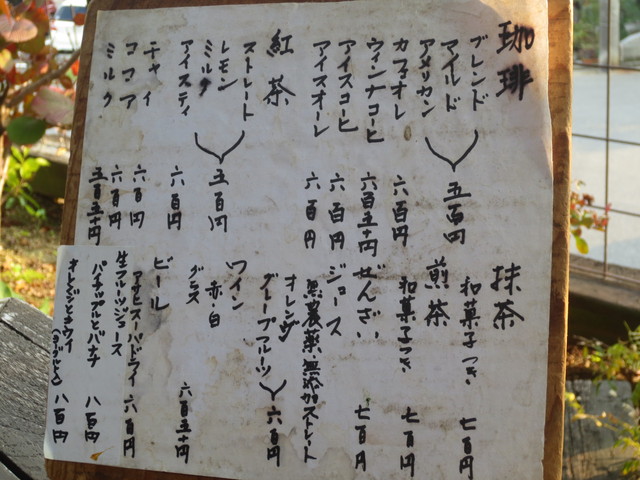 珈琲
ブレンド
マイルド
アメリカン
五百円
カフェオレ 六百円
ウィンナコーヒ 六百五十円
アイスコーヒ 六百円
アイスオーレ 六百円
紅茶
ストレート
レモン
ミルク
五百円
アイスティ 六百円
チャイ 六百円
ココア 六百円
ミルク 五百五十円
抹茶
和菓子つき 七百円
煎茶
和菓子つき 七百円
ぜんざい 七百円
ジュース
無農薬無添加ストレート
オレンヂ
グレープフルーツ
六百円
ワイン
赤・白
グラス 六百五十円
ビール
アサヒスーパードライ 六百円
生フルーツジュース
パイナップルとバナナ 八百円
オレンジとキウイ
(ヨーグルト入) 八百円